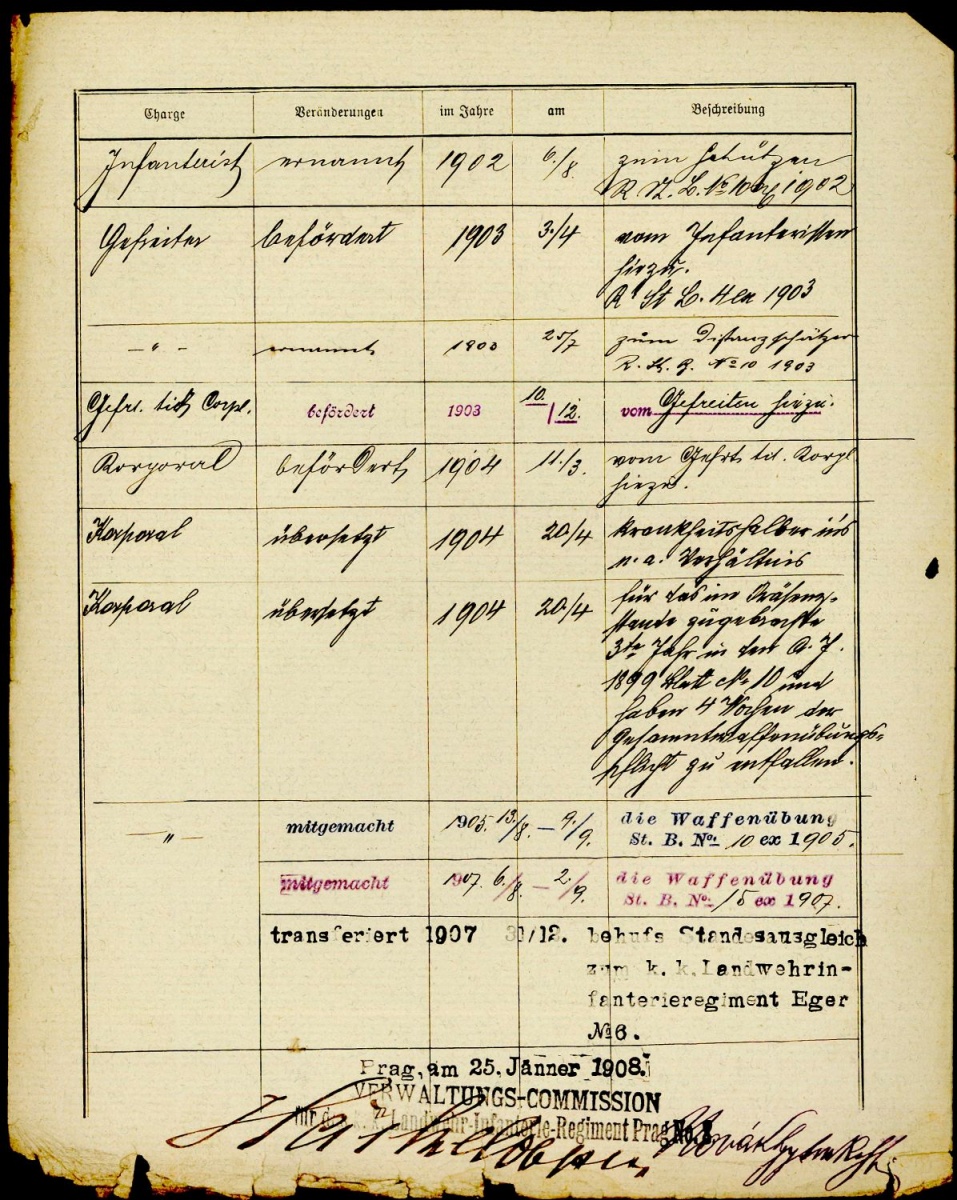 Charge Veränderungen im Jahre am Beschreibung
Infanterist ernannt 1902 6./8. zum Schützen
R. St. B. № 10 ex 1902
Gefreiter befördert 1903 3./4 vom Infanteristen
hiezu.
R. St. B. 4 ex 1903
— " — ernannt 1903 25/7 zum Distanzschätzer
R. St. B. № 10 1903
Gefrt. tit. Corpl. befördert 1903 10./12. vom Gefreiten hiezu.
Korporal befördert 1904 11./3. vom Gefrt. tit. Korpl
hiezu.
Korporal übersetzt 1904 20./4 krankheitshalber ins
n. a. Verhältnis
Korporal übersetzt 1904 20./4 für das im Präsenz-
stande zugebrachte
3te Jahr in den
1899 Blatt № 10 und
haben 4 Wochen der
Gesammtwaffenübungs-
pflicht zu entfallen.
— " — mitgemacht 1905. 13./8. — 9./9. die Waffenübung
St. B. No. 10 ex 1905.
mitgemacht 1907. 6./8. — 2./9. die Waffenübung
St. B. No. 15 ex 1907.
transferiert 1907 31/12. behufs Standesausgleich
zum k. k. Landwehrin-
fanterieregiment Eger
№ 6.
Prag, am 25. Jänner 1908.
VERWALTUNGS-COMMISSION
für das k. k. Landwehr-Infanterie-Regiment Prag No. 8.